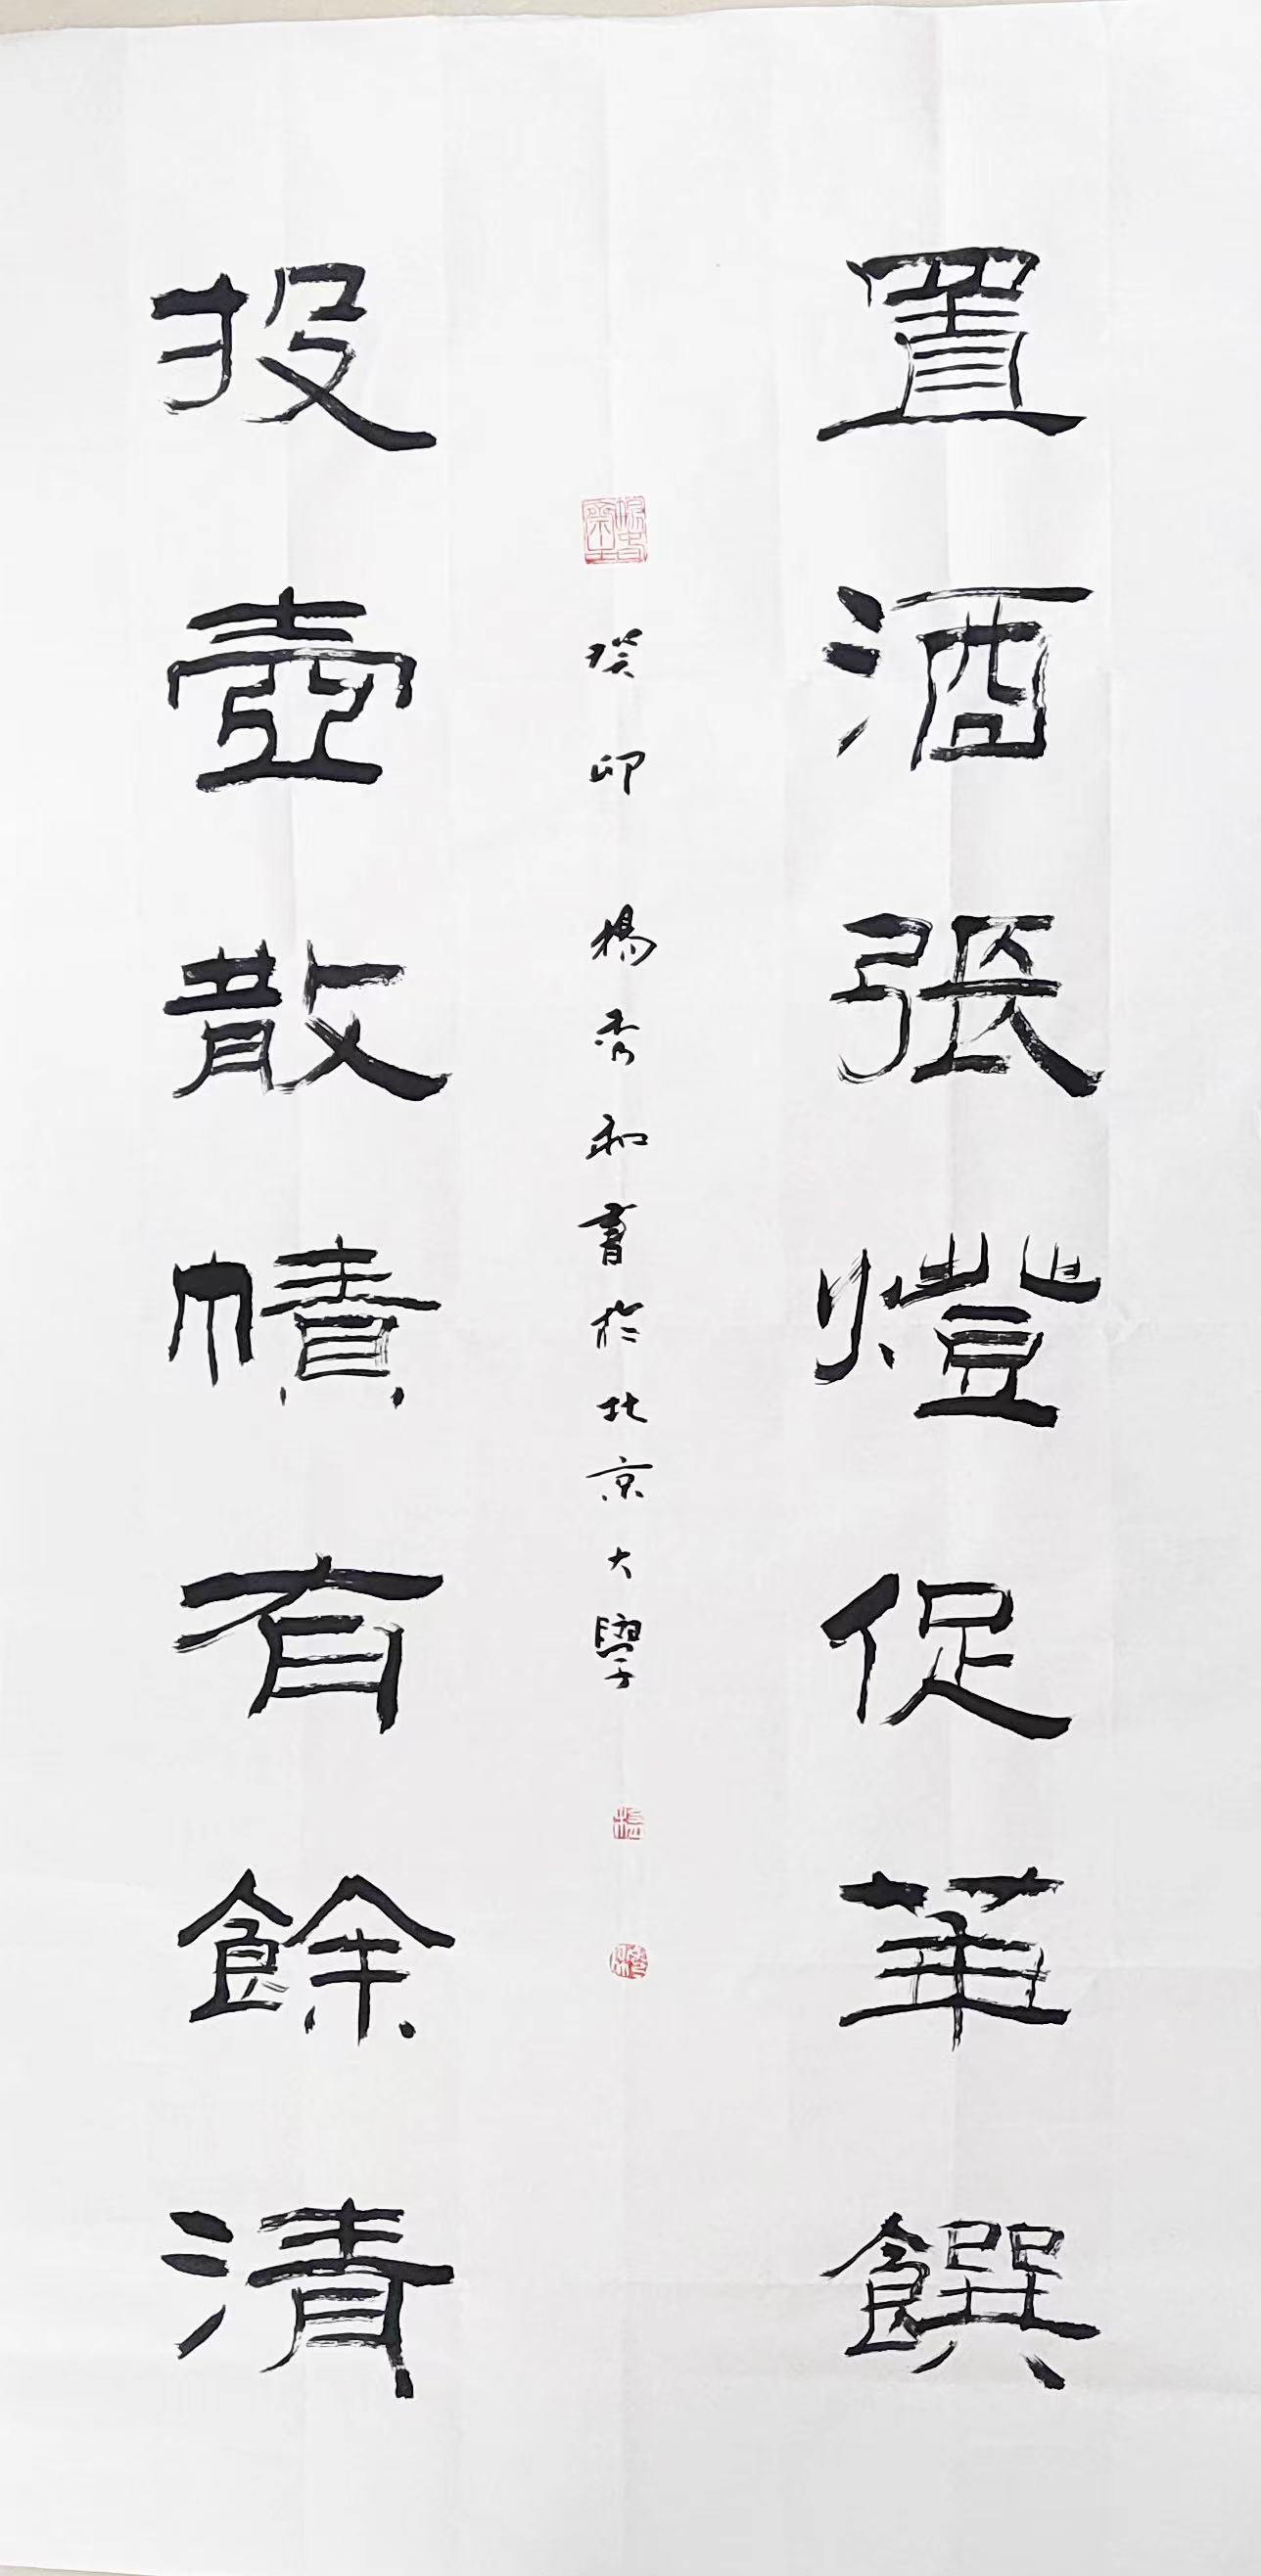 置酒張燈促華饌
投壺散幘有餘清
癸卯 楊秀和書於北京大學